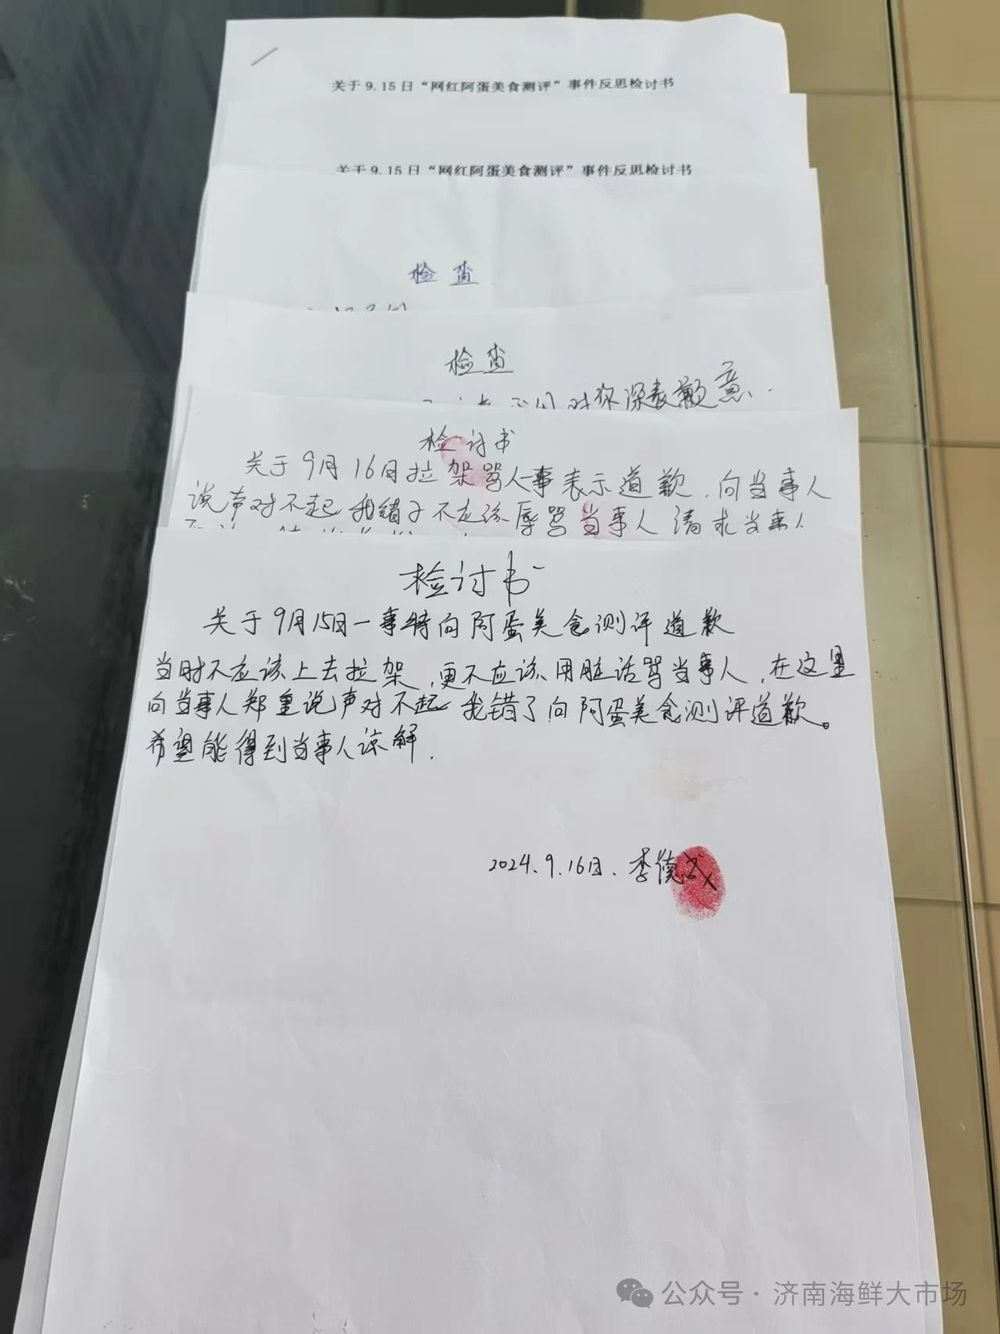 关于9.15日“网红阿蛋美食测评”事件反思检讨书
关于9.15日“网红阿蛋美食测评”事件反思检讨书
检查
检查
对你深表歉意.
检讨书
关于9月16日拉架骂人一事表示道歉.向当事人
说声对不起我错了不应该辱骂当事人请求当事人
检讨书
关于9月15日一事特向阿蛋美食测评道歉
当时不应该上去拉架,更不应该用脏话骂当事人,在这里
向当事人郑重说声对不起我错了向阿蛋美食测评道歉。
希望能得到当事人谅解.
2024.9.16日.李德
公众号·济南海鲜大市场